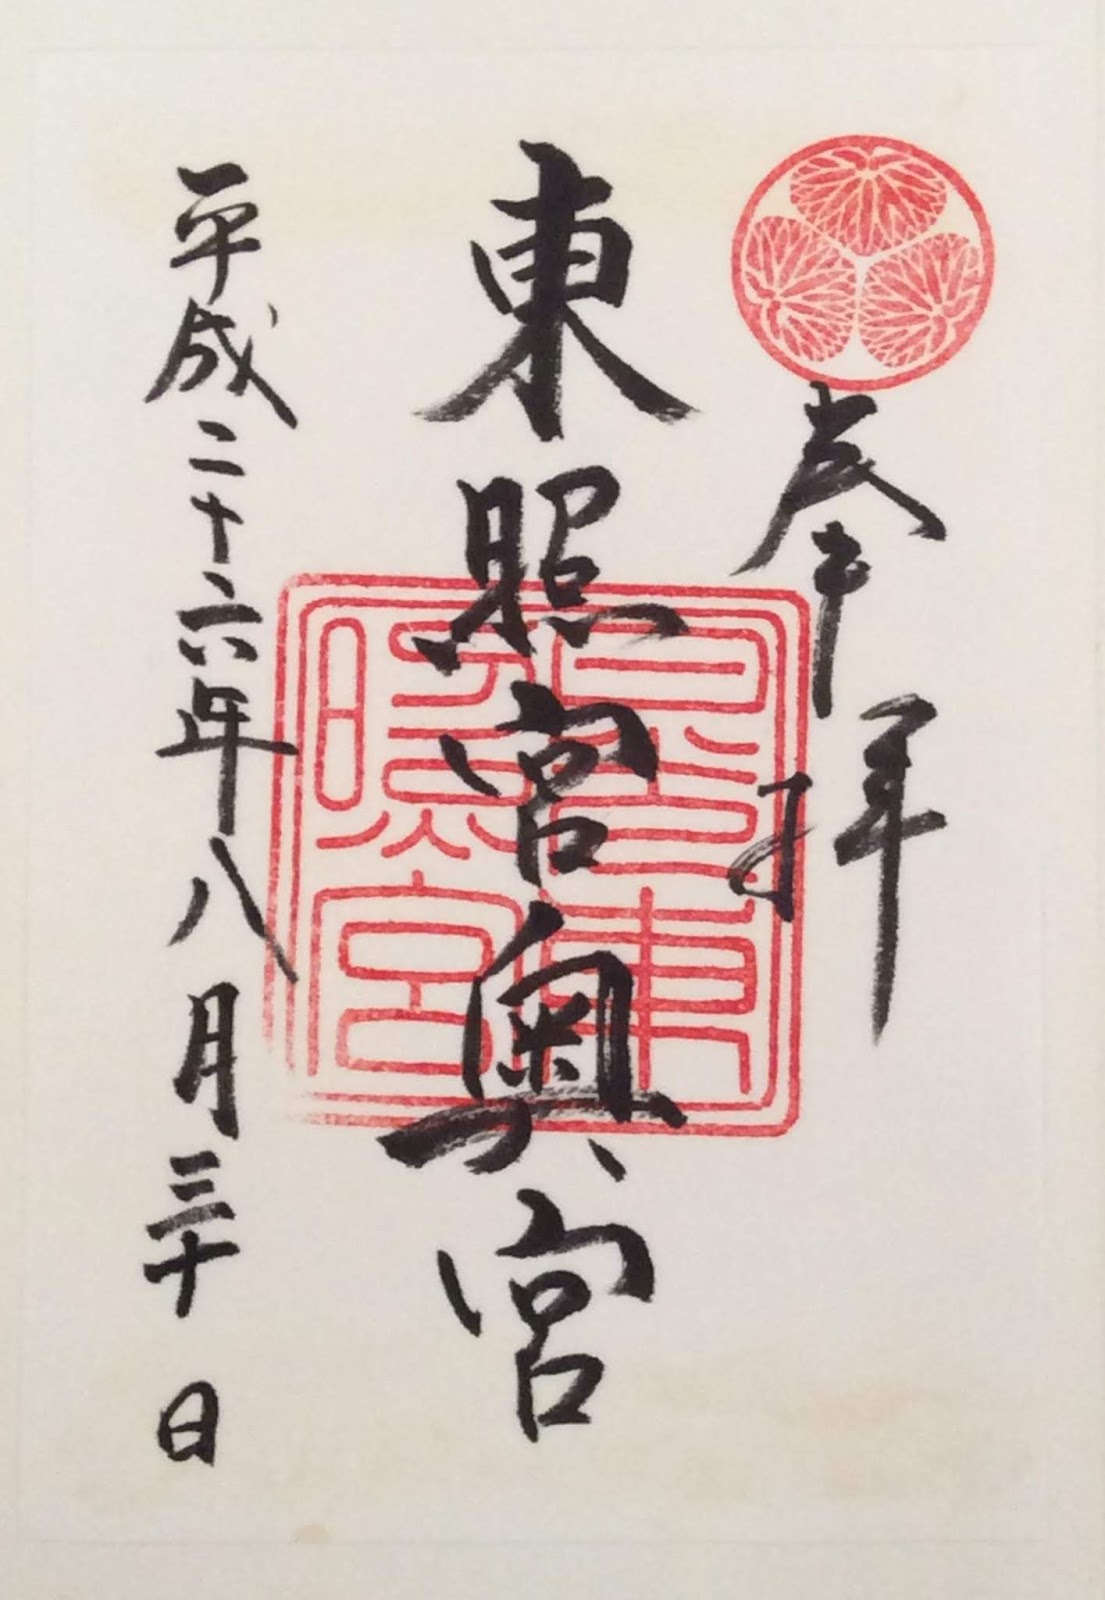 奉拝
東照宮奥宮
日光東
照宮
平成二十六年八月三十日